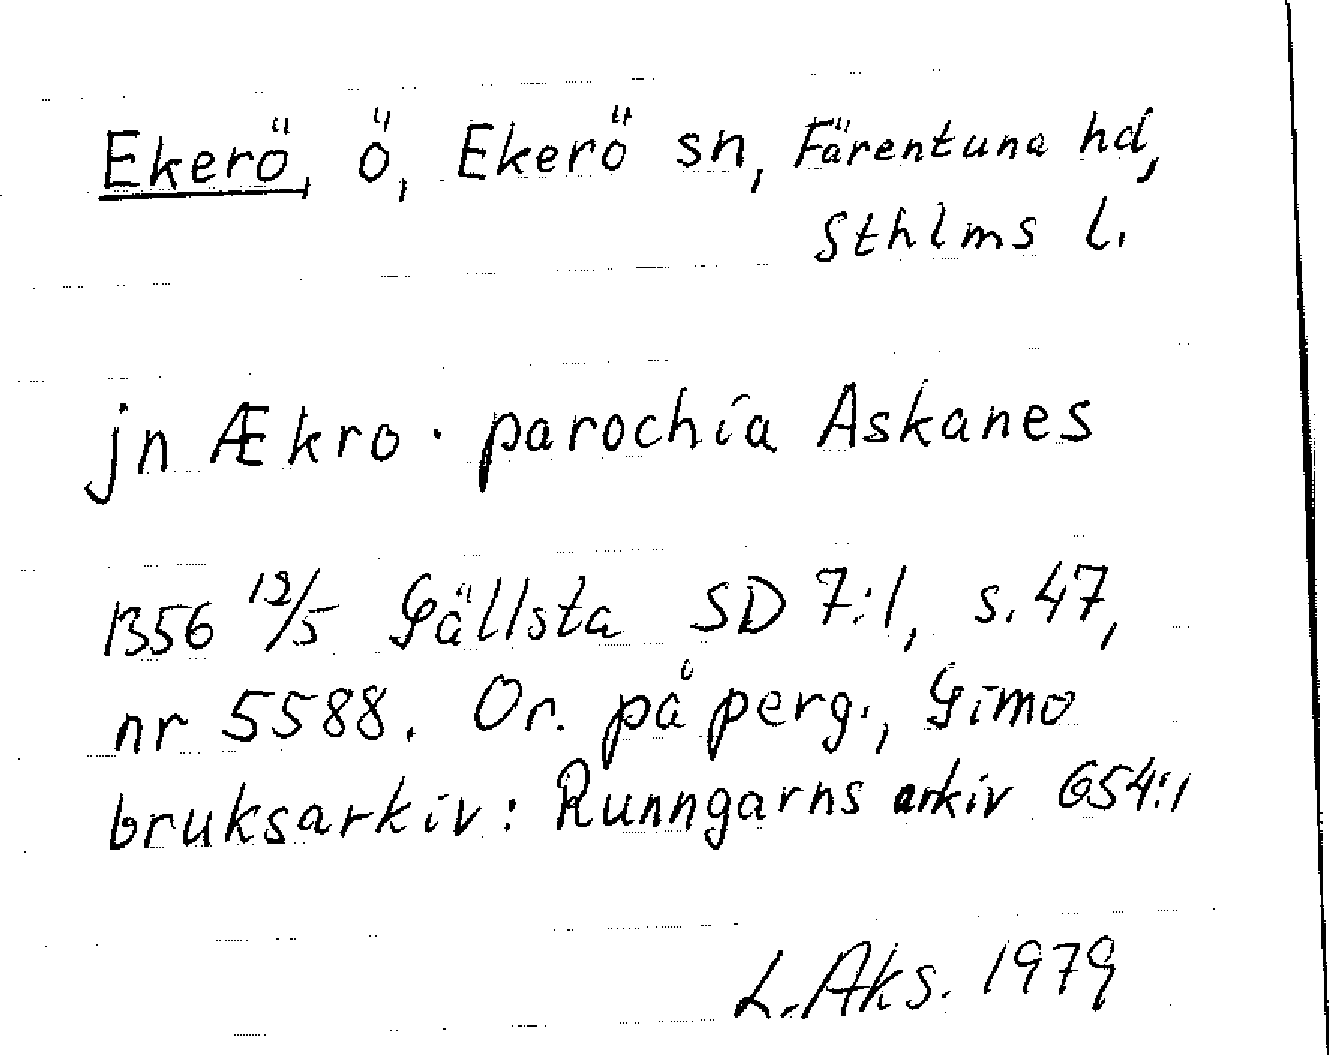 Ekerö, ö, Ekerö sn, Färentuna hd,
Sthlms l.
jn Ækro · parochia Askanes
1356 12/5 Gällsta SD 7:1, s. 47,
nr 5588. Or. på perg., Gimo
bruksarkiv: Runngarns arkiv G54:1
L. Aks. 1979